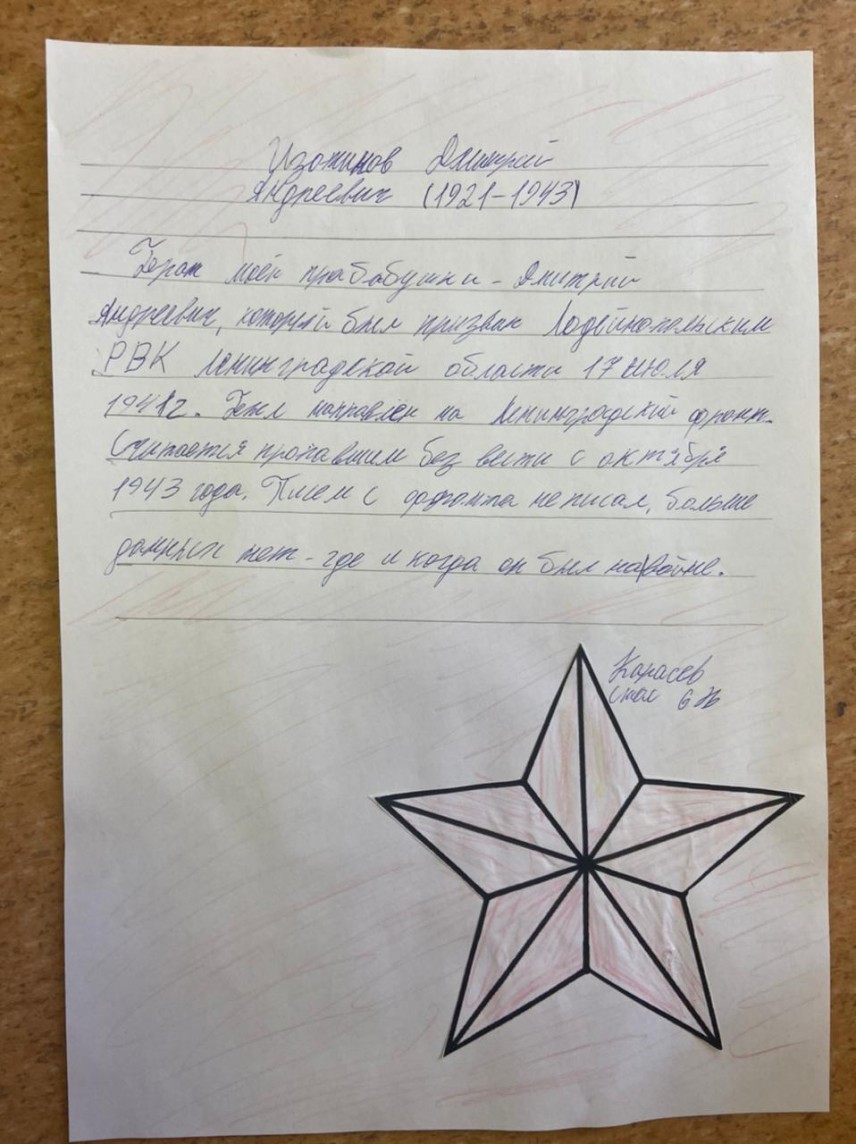 Изотинов Дмитрий
Андреевич (1921-1943)
Герои моей прабабушки - Дмитрий
Андреевич, который был призван Лодейнопольским
РВК Ленинградской области 17 июля
1941г. Был направлен на Ленинградский фронт.
Считается пропавшим без вести с октября
1943 года. Писем с фронта не писал, больше
данных нет - где и когда он был на войне.
Карасев
Стас 6